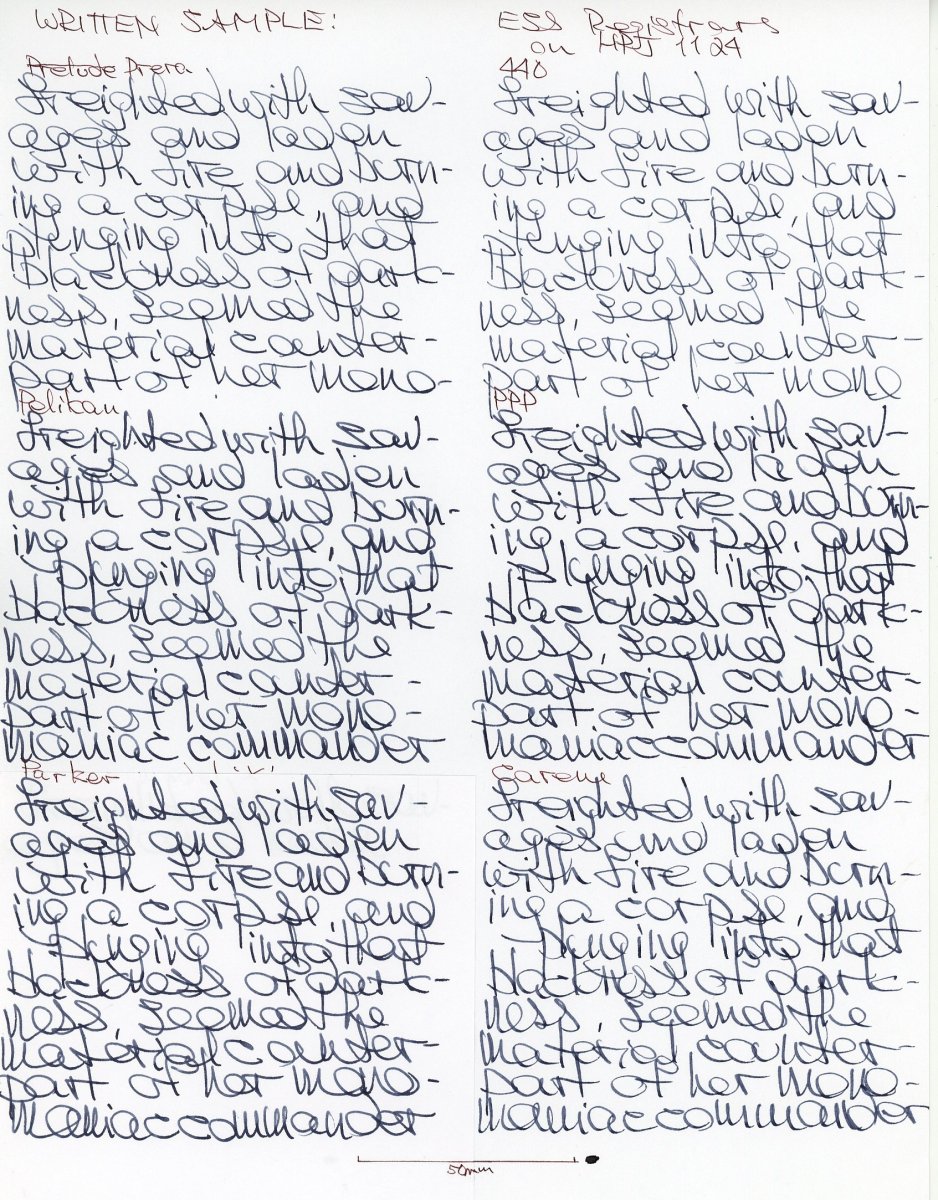 WRITTEN SAMPLE:
ESS Registrars
on HPJ 1124
Prelude Prera
freighted with sav-
ages and laden
with fire and burn-
ing a corpse, and
plunging into that
blackness of dark-
ness, seemed the
material counter-
part of her mono-
440
freighted with sav-
ages and laden
with fire and burn-
ing a corpse, and
plunging into that
blackness of dark-
ness, seemed the
material counter-
part of her mono
Pelikan
freighted with sav-
ages and laden
with fire and burn-
ing a corpse, and
plunging into that
blackness of dark-
ness, seemed the
material counter-
part of her mono-
maniac commander
PPP
freighted with sav-
ages and laden
with fire and burn-
ing a corpse, and
plunging into that
blackness of dark-
ness, seemed the
material counter-
part of her mono-
maniac commander
Parker
freighted with sav-
ages and laden
with fire and burn-
ing a corpse, and
plunging into that
blackness of dark-
ness, seemed the
material counter-
part of her mono-
maniac commander
Carene
freighted with sav-
ages and laden
with fire and burn-
ing a corpse, and
plunging into that
blackness of dark-
ness, seemed the
material counter-
part of her mono-
maniac commander
50mm